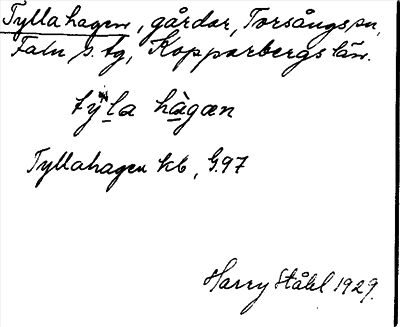 Tyllahagen, gårdar, Torsångs sn,
Falu s. tg, Kopparbergs län.
tỳla hàgæn
Tyllahagen kb, G.97
Harry Ståhl 1929.